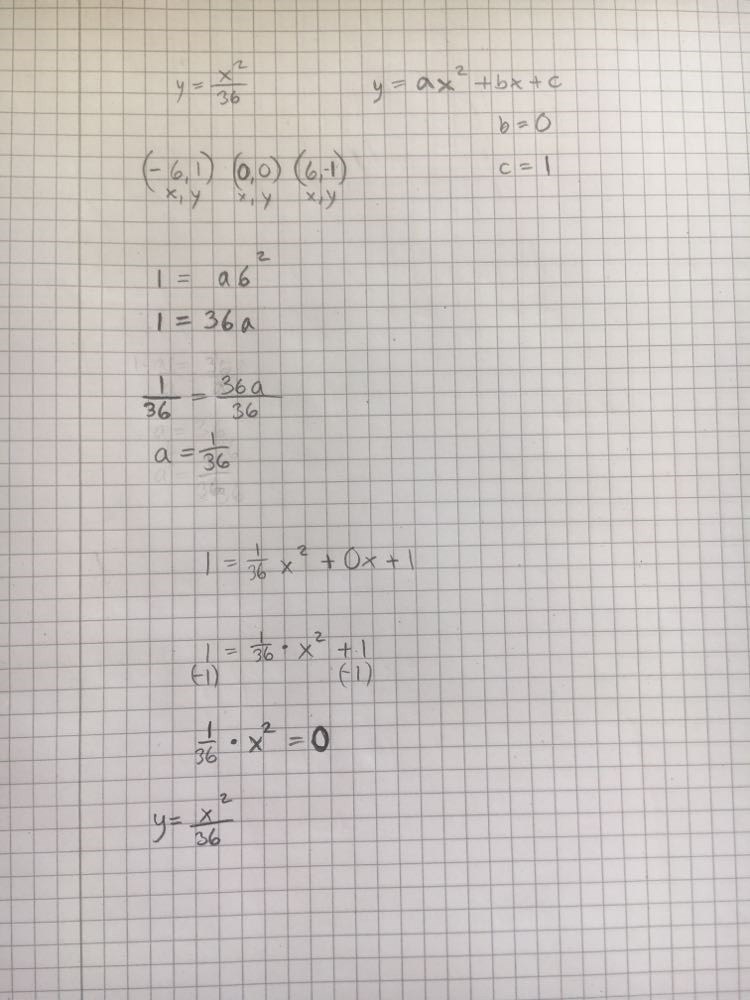 y = x²/36
y = ax² + bx + c
b = 0
c = 1
(-6,1) (0,0) (6,-1)
x, y x, y x, y
1 = a6²
1 = 36a
1/36 = 36a/36
a = 1/36
1 = 1/36 x² + 0x + 1
1 = 1/36 · x² + 1
(-1) (-1)
1/36 · x² = 0
y = x²/36